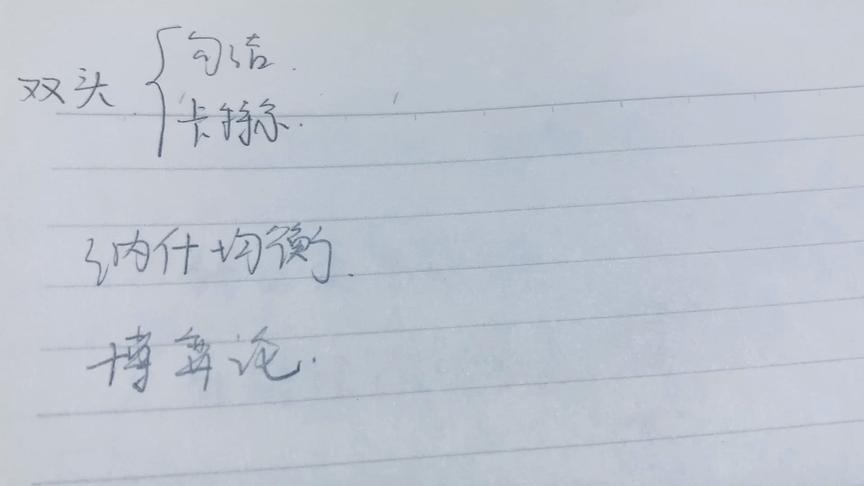 双头 { 勾结.
卡特尔.
纳什均衡.
博弈论.